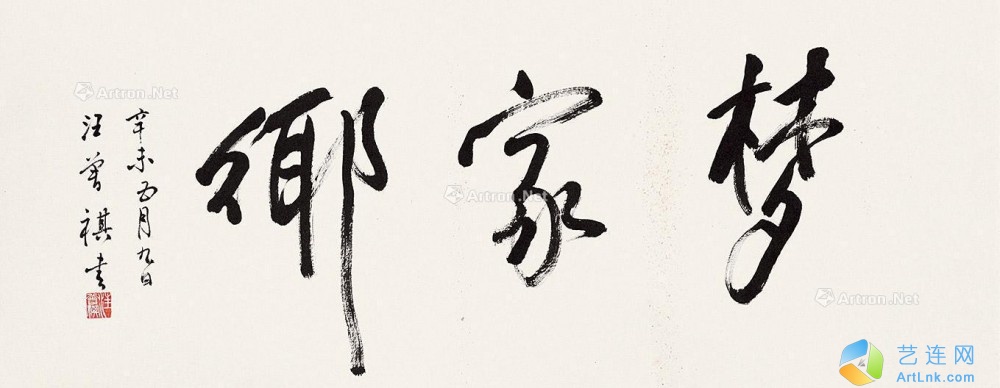 梦家鄉
辛未五月九日
汪曾祺书
Artron.Net
Artron.Net
Artron.Net
Artron.Net
艺连网
ArtLnk.com